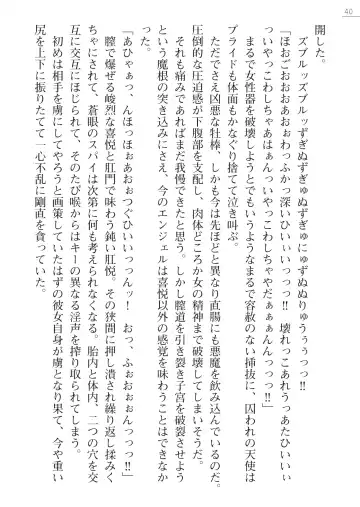 40
開した。
「ズブルッズブルッずぎぬずぎゅぬずぎゅにゅずぬぬりゅうぅぅっっ!!
「ほおごおおおあぉぉわっふかっ深いひぃぃっっっ!! 壊れっこあれうっあたひいいぃ
っいやっこわしちゃあはぁんっいやっこわしちゃやだぁぁぁんんっっっ!!」
まるで女性器を破壊しようとでもいうようなまるで容赦のない挿抜に、囚われの天使は
プライドも体面もかなぐり捨てて泣き叫ぶ。
ただでさえ凶悪な牡棒、しかも今は先ほどと異なり直腸にも悪魔を飲み込んでいるのだ。
圧倒的な圧迫感が下腹部を支配し、肉体どころか女の精神まで破壊してしまいそうだ。
それも痛みであればまだ我慢できたと思う。しかし膣道を引き裂き子宮を破裂させよう
という魔根の突き込みにさえ、今のエンジェルは喜悦以外の感覚を味わうことができなか
った。
「あひゃぁっ、んほっほぉあおぉつぐひいぃっっんッ! おっ、ふぉおぉおんっっっ!!」
膣で爆ぜる峻烈な喜悦と肛門で味わう鈍い肛悦。その狭間に押し潰され繰り返し揉みく
ちゃにされて、蒼眼のスパイは次第に何も考えられなくなる。胎内と体内、二つの穴を交
互に交互にほじられて、そのたび喉からはキーの異なる淫声を搾り取られてしまう。
初めは相手を虜にしてやろうと画策していたはずの彼女自身が虜となり果て、今や重い
尻を上下に振りたてて一心不乱に剛直を貪っていた。